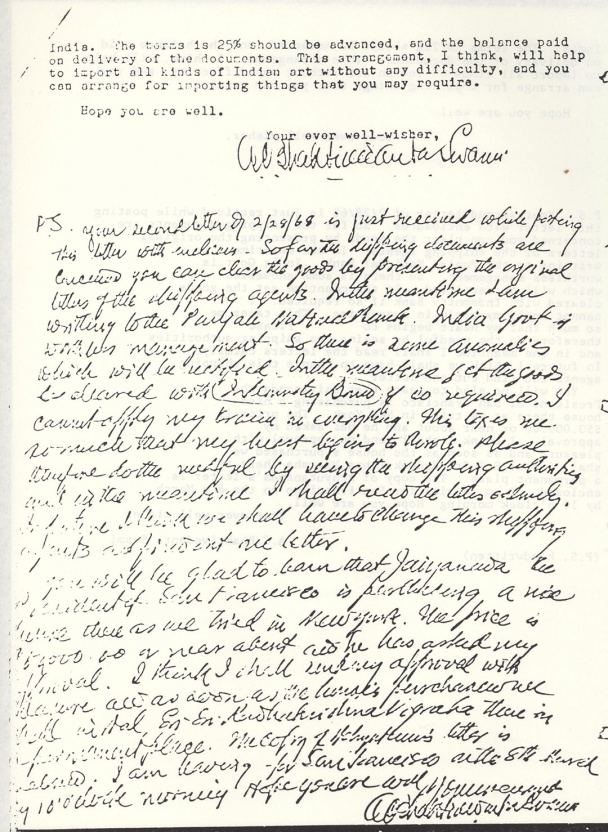 India. The terms is 25% should be advanced, and the balance paid
on delivery of the documents. This arrangement, I think, will help
to import all kinds of Indian art without any difficulty, and you
can arrange for importing things that you may require.
Hope you are well.
Your ever well-wisher,
A.C. Bhaktivedanta Swami
P.S. your second letter of 2/28/68 is just received while posting
this letter with enclosures. So far the shipping documents are
concerned you can clear the goods by presenting the original
letters of the shipping agents. In the meantime I am
writing to the Punjab National Bank. India Govt is
management. So there is some anomalies
which will be rectified. In the meantime get the goods
be cleared with Indemnity Bond if so required. I
cannot apply my brain in everything. This taxes me
so much that my heart begins to throb. Please
therefore do the needful by seeing the shipping authorities
and in the meantime I shall read the letters
In future I think we shall have to change this shipping
agents
you will be glad to learn that Jaiyananda the
president of San Francisco is purchasing a nice
house there as we tried in New york. The price is
000.00 or near about and he has asked my
approval. I think I shall send my approval with
as soon as the house is purchased we
shall instal Sri Sri Radhakrishna Vigraha there in
permanent place. The copy of letter is
I am San Francisco on the 8th March
by 10'oclock morning Hope you are well
A.C. Bhaktivedanta Swami